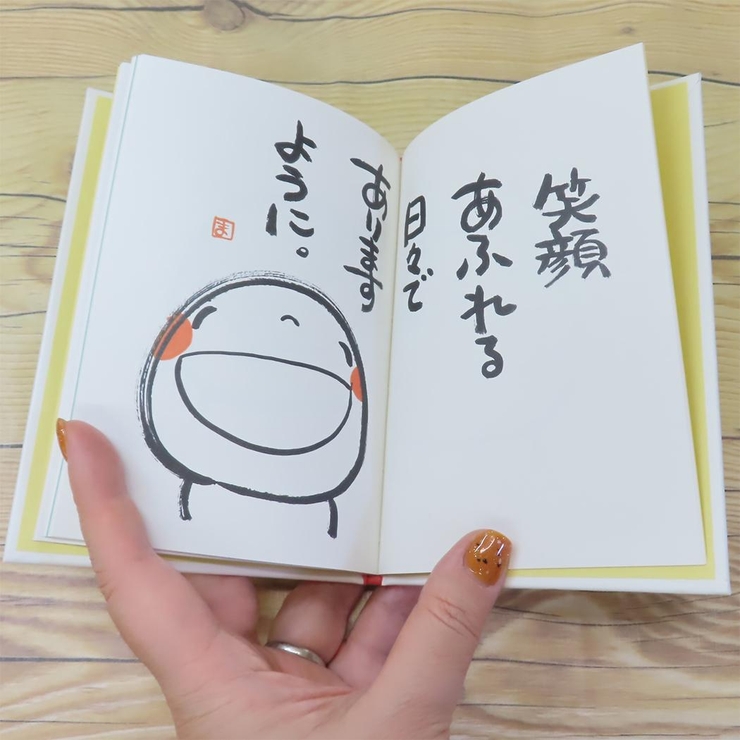 笑顔
あふれる
日々で
あります
ように。
ま